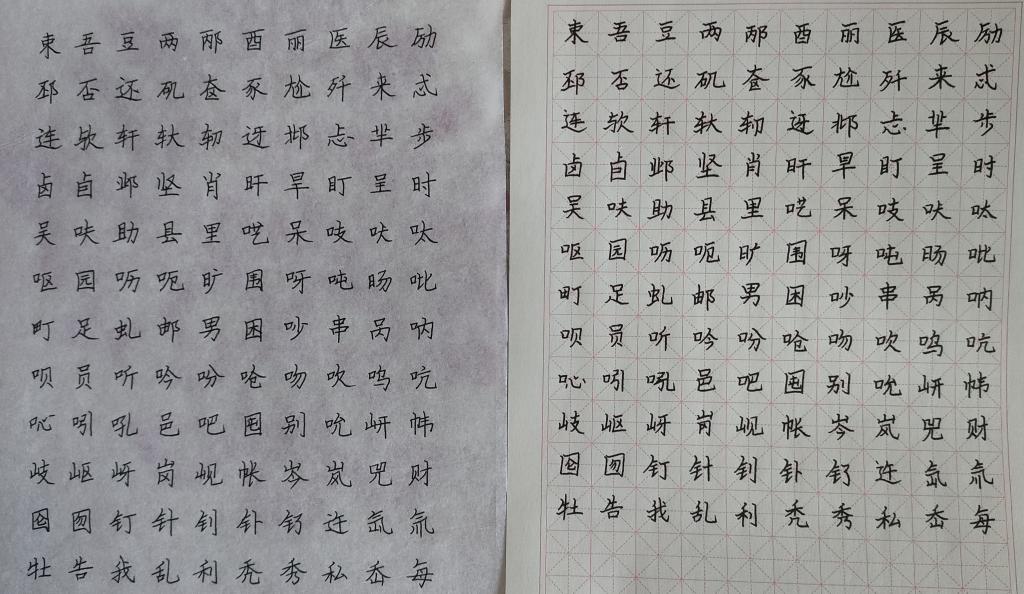 束吾豆两邴酉丽医辰励
邳否还矶奁豕尬歼来忒
连欤轩轪轫迓邶忐芈步
卤卣邺坚肖旰旱盯呈时
吴呋助县里呓呆吱吠呔
呕园呖呃旷围呀吨旸吡
町足虬邮男困吵串呙呐
呗员听吟吩呛吻吹呜吭
吣吲吼邑吧囤别吮岍帏
岐岖岈岗岘帐岑岚兕财
囵囫钉针钊钋钌迕氙氚
牡告我乱利秃秀私岙每
束吾豆两邴酉丽医辰励
邳否还矶奁豕尬歼来忒
连欤轩轪轫迓邶忐芈步
卤卣邺坚肖旰旱盯呈时
吴呋助县里呓呆吱吠呔
呕园呖呃旷围呀吨旸吡
町足虬邮男困吵串呙呐
呗员听吟吩呛吻吹呜吭
吣吲吼邑吧囤别吮岍帏
岐岖岈岗岘帐岑岚兕财
囵囫钉针钊钋钌迕氙氚
牡告我乱利秃秀私岙每